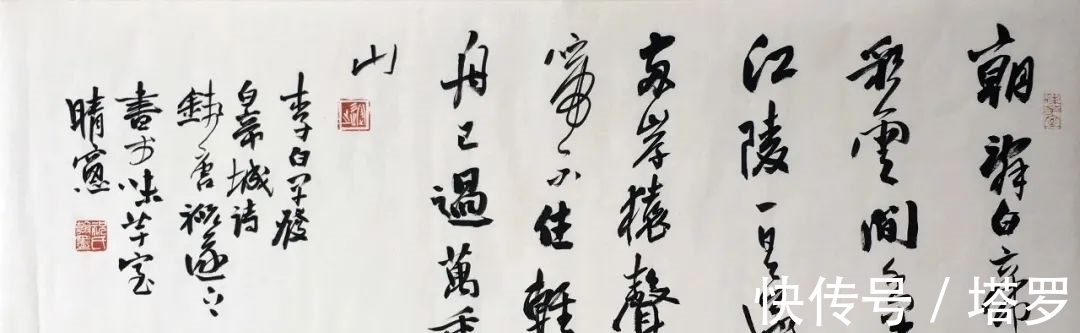 朝辭白帝
彩雲間千
江陵一日還
兩岸猿聲
啼不住輕
舟已過萬重
山
李白早發
白帝城詩
錢唐祝遂之
書於味芋室
晴窻
快传号 / 塔罗